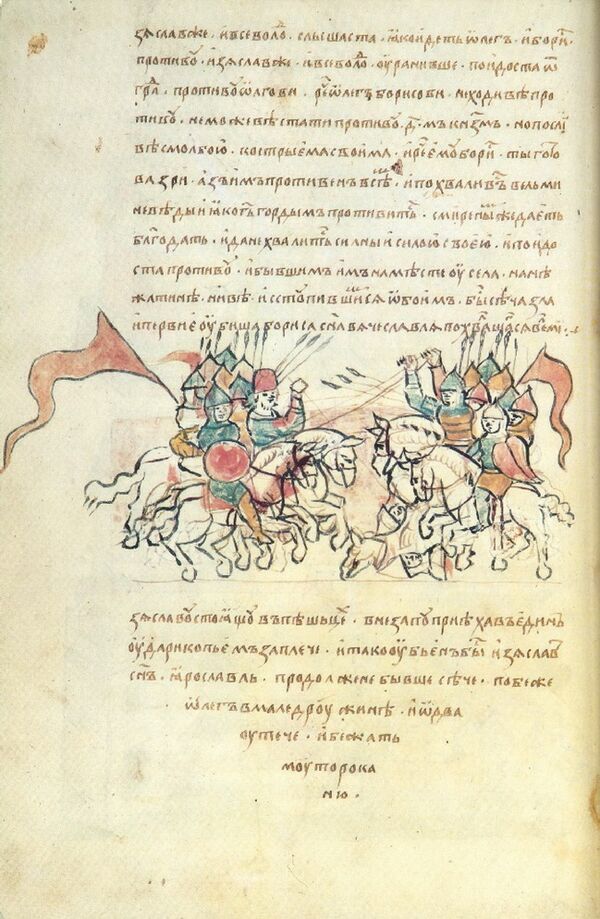 зѧславже · ивсеволѡ · слышаста · ꙗкоидеть ѡлегъ · иборⷭи ·
противоу · изѧславже · ивсеволѡ · оуранивше · поидоста ѿ
граⷣ · противоу ѡлгови · реⷱ ѡлегъ борисови · неходивѣ про
тивоу · неможевѣ стати противоу · д҃ · мъ кнѧземъ · но послі
вѣ смолбою · кострыемасвоима · и реⷱ емоу борⷭи · ты гото
ва зри · азъ имъ противенъ всѣⷨ · и похваливъ вельми
неведыи ꙗко бг҃ъ гордымъ противитьⷭ · смиренымже даеть
благодать · иданехвалитьⷭ силныи силою своею · и поидо
ста противоу · ибывшимъ имъ намѣсти оу села · нанѣ
жатинѣ · нивѣ · и сстоупившимсѧ ѡбоимъ · быⷭ сѣча зла
и первие оубиша бориса сн҃а вѧчеславлѧ похвалившасѧ велмі
зѧславоу стоꙗщоу въ пѣшьцѣ · внезапоу приѣхавъ единъ
оудари копьемъ за плече · и тако оубьенъ быⷭ изѧславъ
сн҃ъ · ꙗрославль · продолженебывше сѣче · побеже
ѡлегъ вмале дроужинѣ · и ѡдва
оутече · ибежать
тмоуторока
ню ·